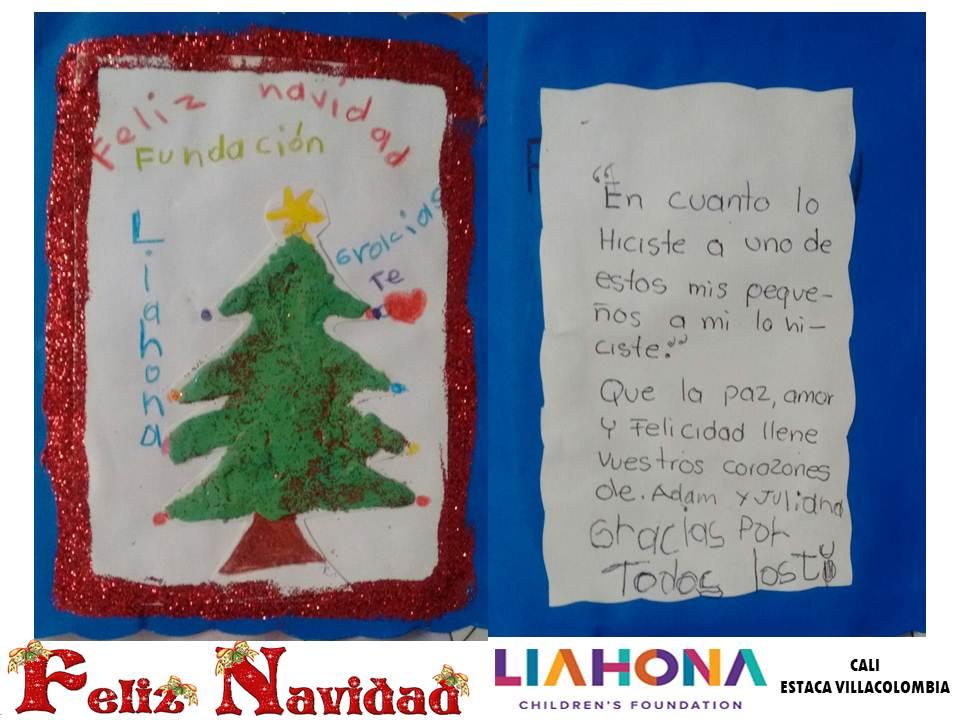 Feliz navidad
Fundación
Liahona
Grolcias
Te
“En cuanto lo
Hiciste a uno de
estos mis peque-
ños a mi lo hi-
ciste.”
Que la paz, amor
y Felicidad llene
vuestros corazones
de. Adam y Juliana
Gracias por
Todos los
Feliz Navidad
LIAHONA
CHILDREN'S FOUNDATION
CALI
ESTACA VILLACOLOMBIA